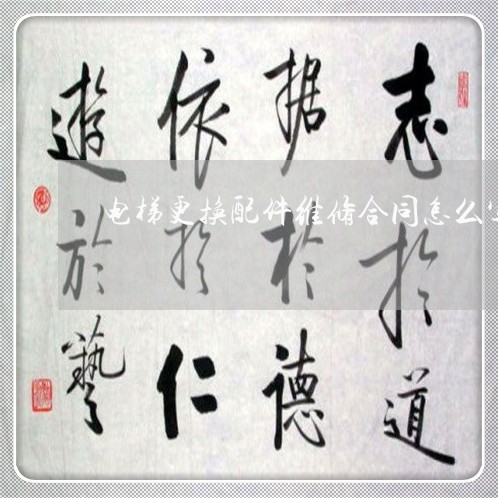 志於道
据於德
依於仁
遊於藝
电梯更换配件维修合同怎么